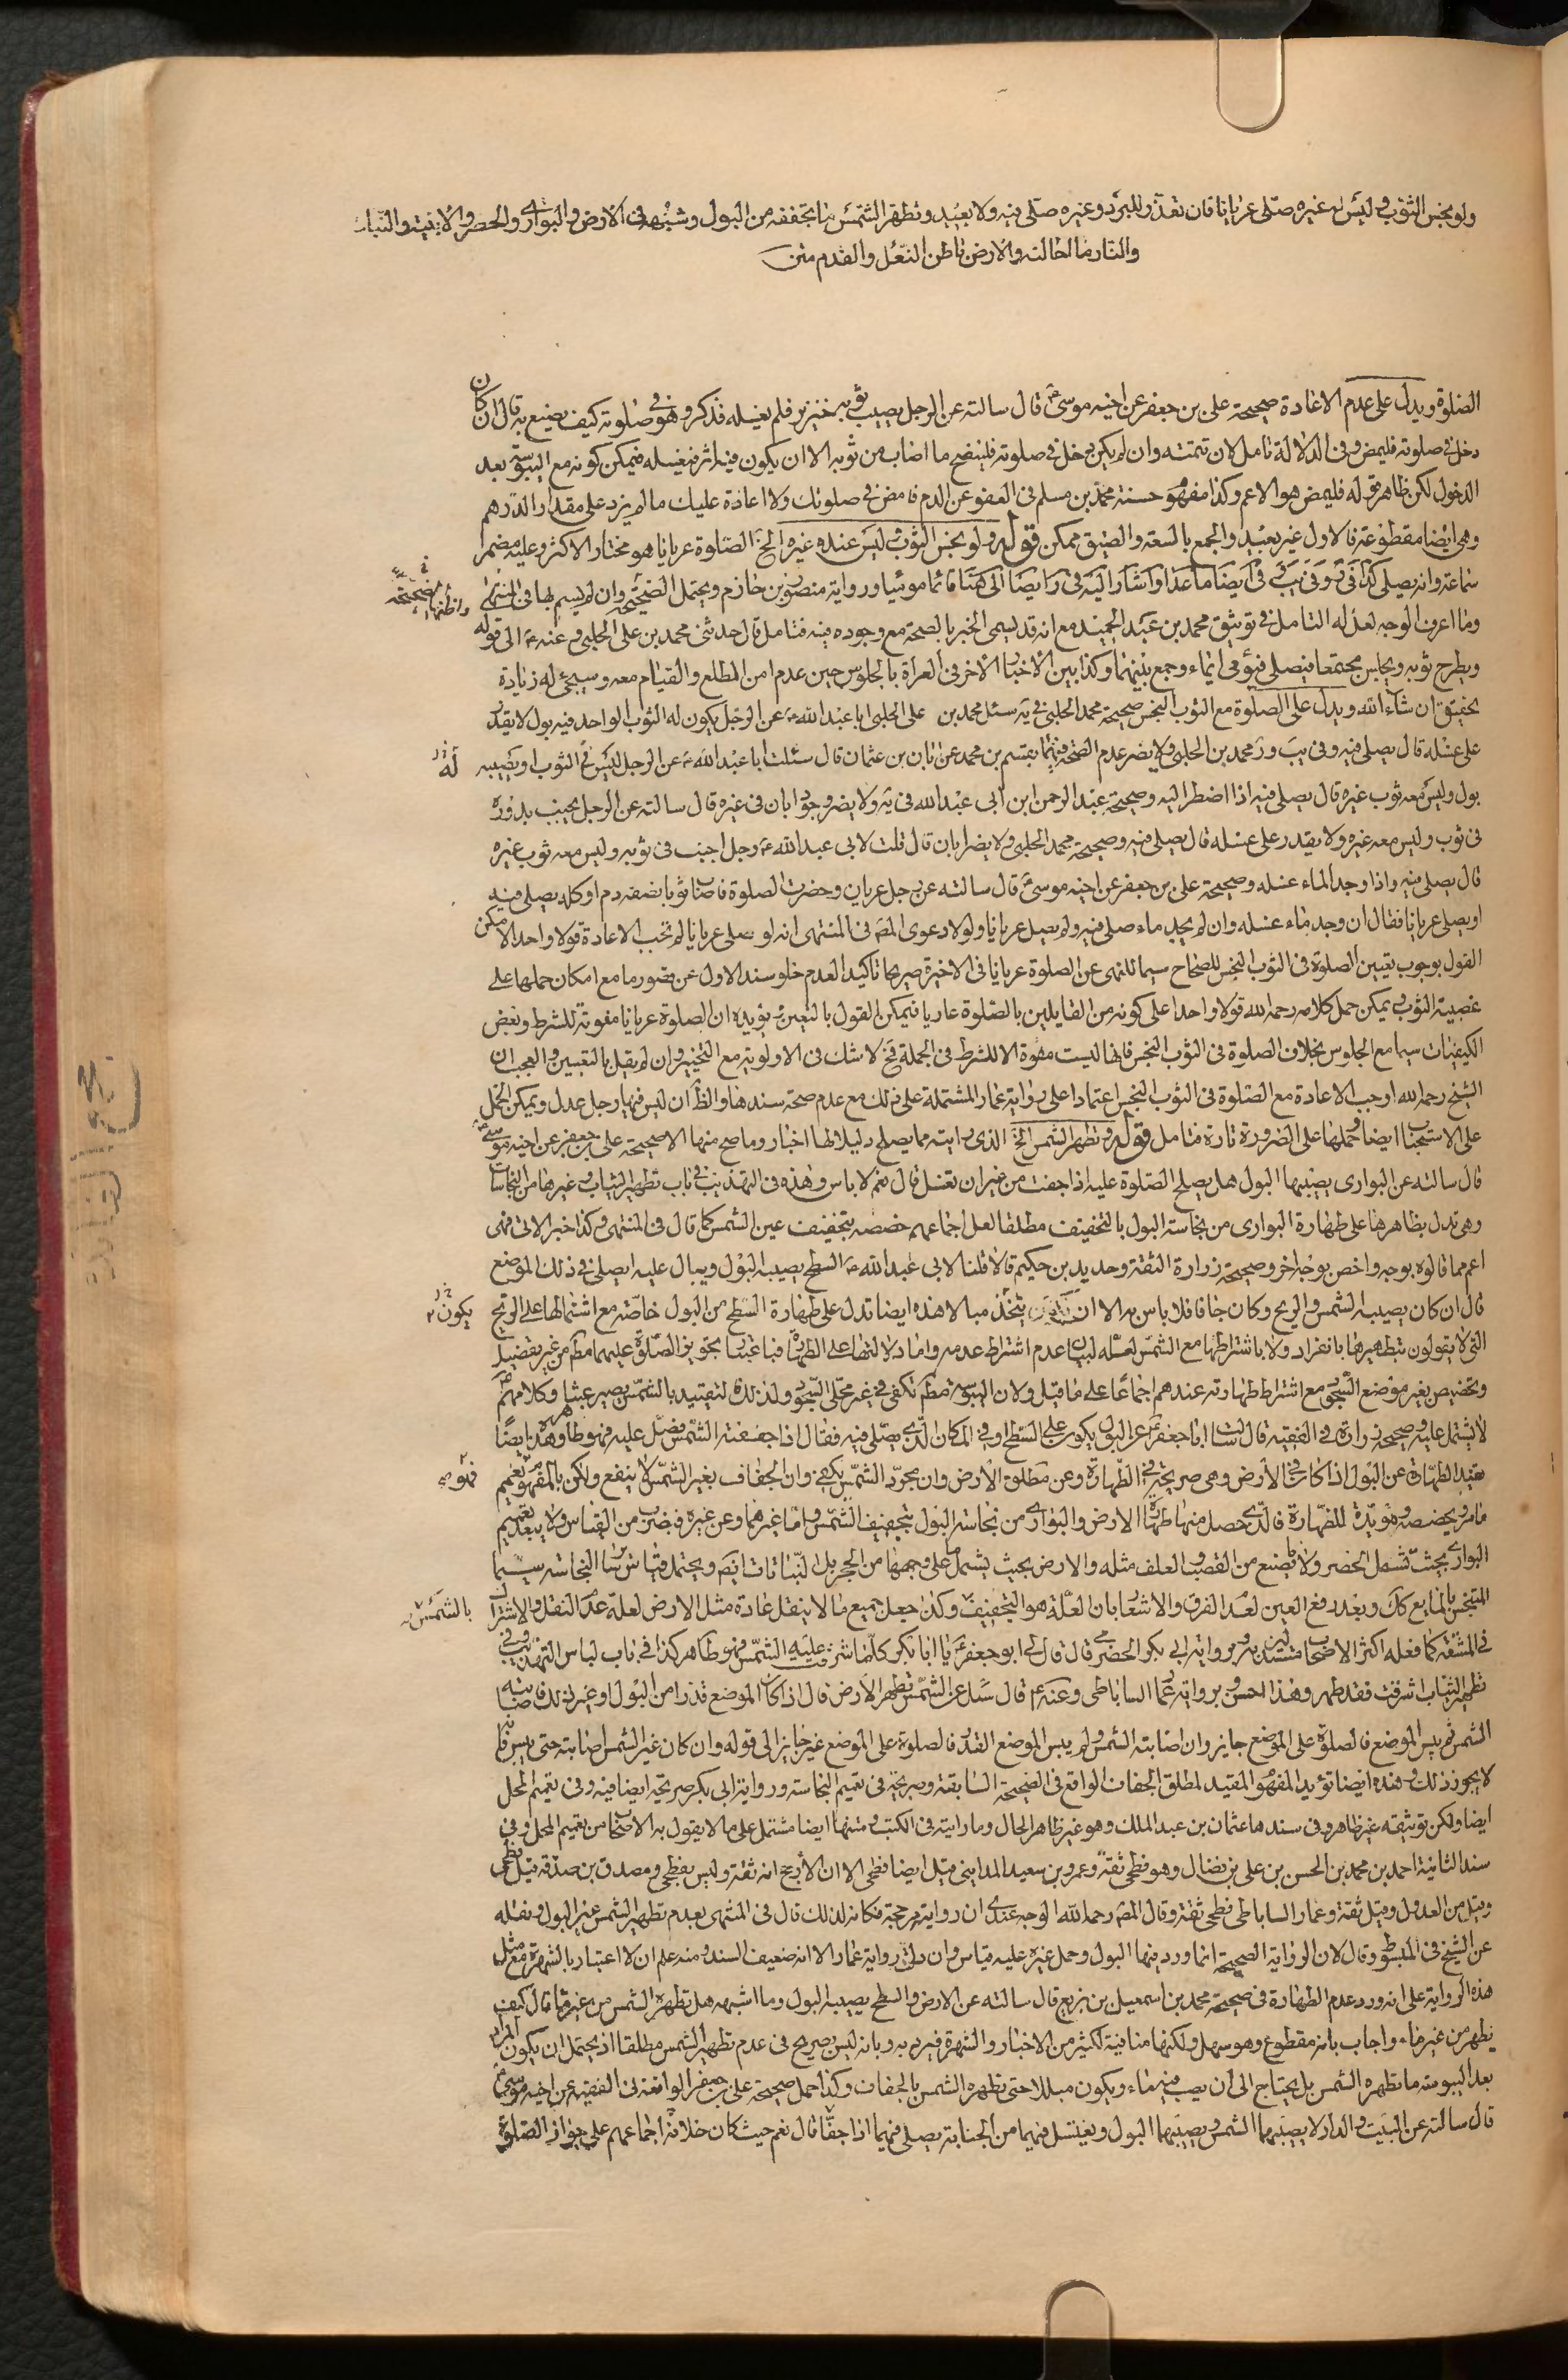 ولو نجس الثوب وليس له غيره صلى عريانا فان تعذر للبرد وغيره صلى فيه ولا يعيد وتطهر الشمس ما تجففه من البول وشبهه في الارض والبوارى والحصر والابنية والنبات
والنار ما احالته والارض باطن النعل والقدم متن
الصلوة ويدل على عدم الاعادة صحيحة على بن جعفر عن اخيه موسى ع قال سالته عن الرجل يصيب ثوبه خنزير فلم يغسله فذكر وهو في صلوته كيف يصنع به قال ان كان
دخل في صلوته فليمض وفى الدلالة تامل لان تتمته وان لم يكن دخل في صلوته فلينضح ما اصاب من ثوبه الا ان يكون فيه اثر فيغسله فيمكن كونه مع اليبوسة بعد
الدخول لكن ظاهر قوله فليمض هو الاعم وكذا مفهوم حسنة محمد بن مسلم في العفو عن الدم فامض في صلوتك ولا اعادة عليك ما لم يزد على مقدار الدرهم
وهى ايضا مقطوعة فالاول غير بعيد والجمع بالسعة والضيق ممكن قوله ولو نجس الثوب وليس عنده غيره الخ الصلوة عريانا هو مختار الاكثر وعليه مضمر
سماعة وانه يصلى قائما موميا ورواية منصور بن حازم ويحتمل الصحة وان لم يسم لها في المنتهى
وما اعرف الوجه لعل له التامل في توثيق محمد بن عبد الحميد مع انه قد يسمى الخبر بالصحة مع وجوده فيه فتامل قال حدثنى محمد بن على الحلبى عنه ع الى قوله
ويطرح ثوبه ويجلس مجتمعا فيصلى فيومى ايماء وجمع بينهما وكذا بين الاخبار الاخر في العراة بالجلوس حين عدم امن المطلع والقيام معه وسيجئ له زيادة
تحقيق ان شاء الله ويدل على الصلوة مع الثوب النجس صحيحة محمد الحلبى في يه سئل محمد بن على الحلبى ابا عبد الله ع عن الرجل يكون له الثوب الواحد فيه بول لا يقدر
على غسله قال يصلى فيه وفى يب ور محمد بن الحلبى ولا يضر عدم الصحة فيهما بقسم بن محمد عن ابان بن عثمان قال سئلت ابا عبد الله ع عن الرجل ليس له الثوب او يصيبه
بول وليس معه ثوب غيره قال يصلى فيه اذا اضطر اليه وصحيحة عبد الرحمن ابن ابى عبد الله في يه ولا يضر وجود ابان في غيره قال سالته عن الرجل يجنب
في ثوب وليس معه غيره ولا يقدر على غسله قال يصلى فيه وصحيحة محمد الحلبى ولا يضر ابان قال قلت لابى عبد الله ع رجل اجنب في ثوبه وليس معه ثوب غيره
قال يصلى فيه واذا وجد الماء غسله وصحيحة على بن جعفر عن اخيه موسى ع قال سالته عن رجل عريان وحضرت الصلوة فاصاب ثوبا نصفه دم او كله يصلى فيه
او يصلى عريانا فقال ان وجد ماء غسله وان لم يجد ماء صلى فيه ولم يصل عريانا ولولا دعوى المص في المنتهى انه لو صلى عريانا لم تجب الاعادة قولا واحدا لامكن
القول بوجوب تعيين الصلوة في الثوب النجس للصحاح سيما للنهى عن الصلوة عريانا في الاخيرة صريحا تاكيد العدم خلو سند الاول عن قصور ما مع امكان حملها على
غصبية الثوب ويمكن حمل كلامه رحمه الله قولا واحدا على كونه من القايلين بالصلوة عاريا فيمكن القول بالتعين يؤيده ان الصلوة عريانا مفوتة للشرط وبعض
الكيفيات سيما مع الجلوس بخلاف الصلوة في الثوب النجس فانها ليست مفوة الا للشرط في الجملة فح لا شك في الاولوية مع التخيير وان لم يقل بالتعيين والعجب ان
الشيخ رحمه الله اوجب الاعادة مع الصلوة في الثوب النجس اعتمادا على رواية عمار المشتملة على ذلك مع عدم صحة سندها والظ ان ليس فيها رجل عدل ويمكن الحمل
على الاستحباب ايضا وحملها على الضرورة تارة فتامل قوله وتطهر الشمس الخ الذى رايته مما يصلح دليلا لها اخبار وما صح منها الا صحيحة على بن جعفر عن اخيه موسى ع
قال سالته عن البوارى يصيبها البول هل يصلح الصلوة عليه اذا جفت من غير ان تغسل قال نعم لا باس وهذه في التهذيب في باب تطهير الثياب وغيرها من النجاسات
وهى تدل بظاهرها على طهارة البوارى من نجاسة البول بالتخفيف مطلقا لعل اجماعهم خصصه بتجفيف عين الشمس كما قال في المنتهى وكذا خبر الاتى فهى
اعم مما قالوه بوجه واخص بوجه اخر وصحيحة زرارة الثقة وحديد بن حكيم قالا قلنا لابى عبد الله ع السطح يصيبه البول ويبال عليه ايصلى في ذلك الموضع
قال ان كان يصيبه الشمس والريح وكان جافا فلا باس به الا ان يتخذ مبالا هذه ايضا تدل على طهارة السطح من البول خاصة مع اشتمالها على الريح
التى لا يقولون بتطهيرها بانفراد ولا باشتراطها مع الشمس لعله لبيان عدم اشتراط عدمه واما دلالتها على الطهارة فباعتبار تجويز الصلوة عليهما مطم من غير تفصيل
وتخصيص بغير موضع السجود مع اشتراط طهارته عندهم اجماعا على ما قيل ولان اليبوسة مطم تكفى في غير محل السجود ولذلك التقييد بالشمس يصير عبثا وكلامهم ع
لا يشتمل عليه وصحيحة زرارة في الفقيه قال سالت ابا جعفر ع عن البول يكون على السطح او في المكان الذى يصلى فيه فقال اذا جففته الشمس فصل عليه فهو طاهر وهذه ايضا
تفيد الطهارة عن البول اذا كان في الارض وهى صريحة في الطهارة وعن مطلق الارض وان مجرد الشمس يكفى وان الجفاف بغير الشمس لا ينفع ولكن بالمفهوم تعميم
ما مر وتخصصه ومؤيدة للطهارة فالذى حصل منها طهارة الارض والبوارى من نجاسة البول بتجفيف الشمس واما غيرهما وعن غيره فبضرب من القياس ولا يبعد تعميم
البوارى بحيث تشمل الحصر ولا ما يصنع من القصب والعلف مثله والارض بحيث يشتمل ما على وجهها من الحجر بل النباتات ايضا ويحتمل قياس ساير النجاسة سيما
المتنجس بالمايع كك وبعد رفع العين لعدم الفرق والاشعار بان العلة هو التجفيف وكذا جعل جميع ما لا ينقل عادة مثل الارض لعله عدم النقل والاشتراك
في المشقة كما فعله اكثر الاصحاب مستندين برواية ابى بكر الحضرمى قال قال لى ابو جعفر ع يا ابا بكر كلما اشرقت عليه الشمس فهو طاهر كذا في باب لباس التهذيب وفى
تطهير الثياب اشرقت فقد طهر وهذا احسن وبرواية عمار الساباطى وعنه ع قال سئل عن الشمس تطهر الارض قال اذا كان الموضع قذرا من البول او غير ذلك فاصابته
الشمس ثم يبس الموضع فالصلوة على الموضع جايز وان اصابته الشمس ولم يبس الموضع القذر فالصلوة على الموضع غير جايز الى قوله وان كان غير الشمس اصابته حتى يبس فانه
لا يجوز ذلك وهذه ايضا تؤيد المفهوم المقيد لمطلق الجفاف الواقع في الصحيحة السابقة وصريحة في تعميم النجاسة ورواية ابى بكر صريحة ايضا فيه وفى تعميم المحل
ايضا ولكن توثيقه غير ظاهر وفى سندها عثمان بن عبد الملك وهو غير ظاهر الحال وما رايته في الكتب ومتنها ايضا مشتمل على ما لا يقول به الاصحاب من تعميم المحل وفى
سند الثانية احمد بن محمد بن الحسن بن على بن فضال وهو فطحى ثقة وعمرو بن سعيد المداينى قيل ايضا فطحى الا ان الارجح انه ثقة وليس بفطحى ومصدق بن صدقة قيل فطحى
وقيل من العدول وقيل ثقة وعمار الساباطى فطحى ثقة وقال المص رحمه الله الوجه عندى ان روايته مرجحة فكانه لذلك قال في المنتهى بعدم تطهير الشمس غير البول ونقله
عن الشيخ في المبسوط وقال لان الرواية الصحيحة انما ورد فيها البول وحمل غيره عليه قياس وان دلت رواية عمار الا انه ضعيف السند ومنه علم ان لا اعتبار بالشهرة مع مثل
هذه الرواية على انه ورد عدم الطهارة في صحيحة محمد بن اسمعيل بن بزيع قال سالته عن الارض والسطح يصيبه البول وما اشبهه هل تطهره الشمس من غير ماء قال كيف
يطهر من غير ماء واجاب بانه مقطوع وهو سهل ولكنها منافية لكثير من الاخبار والشهرة فيرد به وبانه ليس بصريح في عدم تطهير الشمس مطلقا اذ يحتمل ان يكون المراد
بعد اليبوسة ما تطهره الشمس بل يحتاج الى ان يصب فيه ماء ويكون مبللا حتى تطهره الشمس بالجفاف وكذا حمل صحيحة على بن جعفر الواقعة في الفقيه عن اخيه موسى ع
قال سالته عن البيت والدار لا يصيبهما الشمس ويصيبهما البول ويغتسل فيهما من الجنابة يصلى فيهما اذا جفا قال نعم حيث كان خلافه اجماعهم على جواز الصلوة